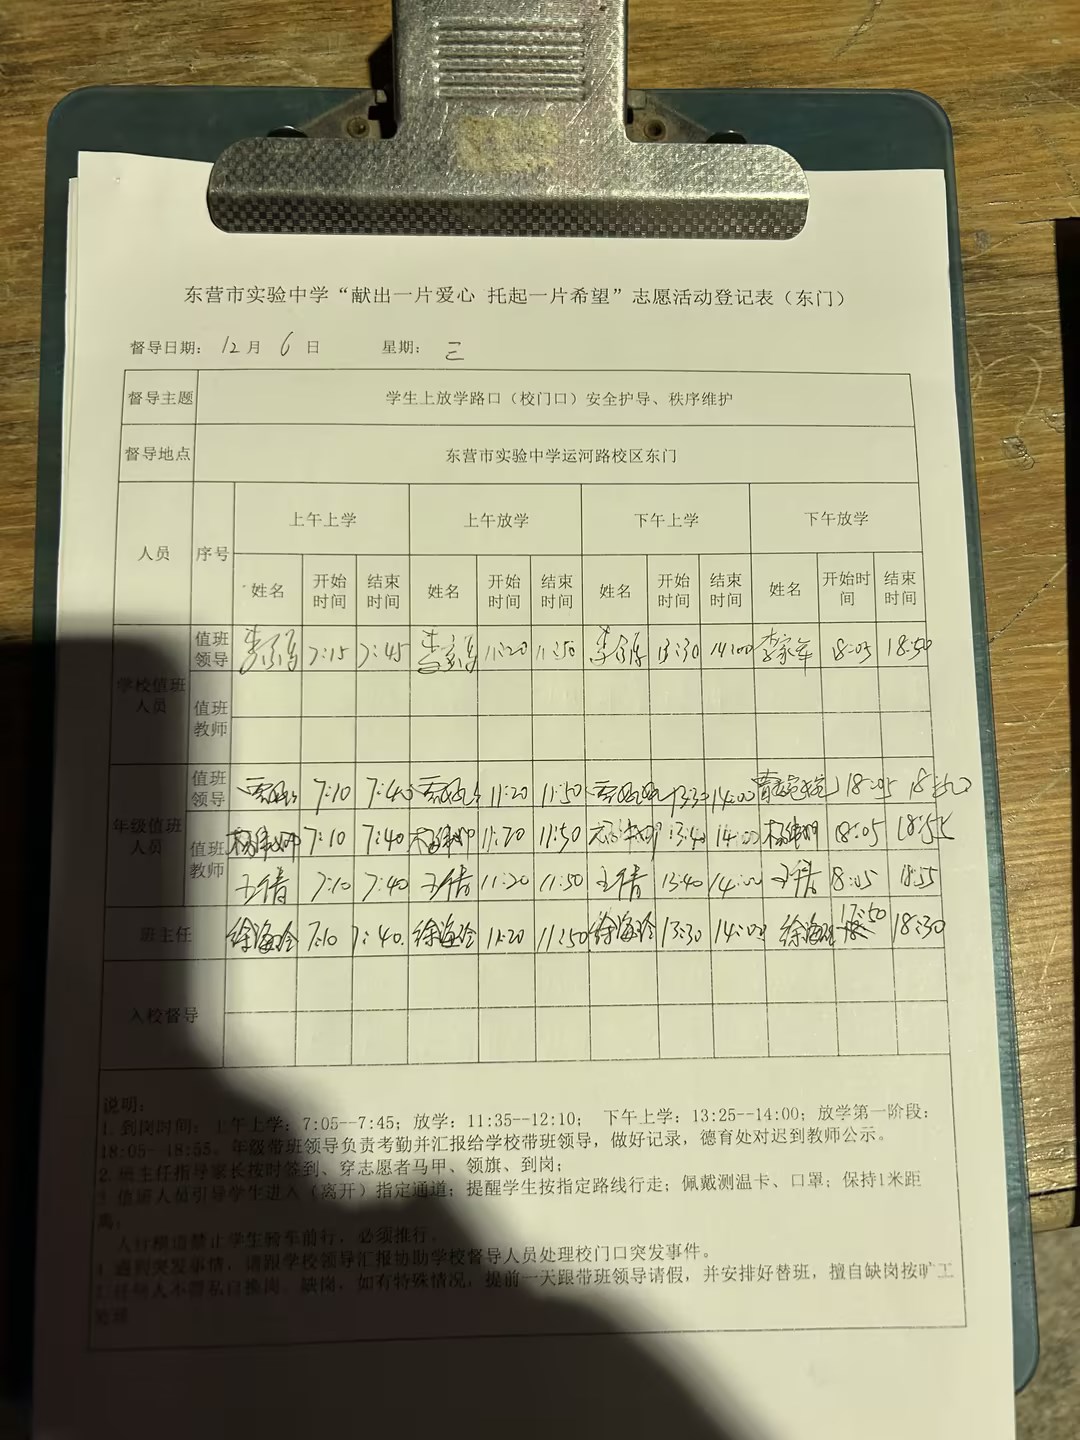 东营市实验中学“献出一片爱心 托起一片希望”志愿活动登记表（东门）
督导日期： 12月 6 日 星期： 三
督导主题 学生上放学路口（校门口）安全护导、秩序维护
督导地点 东营市实验中学运河路校区东门
人员 序号 上午上学 上午放学 下午上学 下午放学
姓名 开始时间 结束时间 姓名 开始时间 结束时间 姓名 开始时间 结束时间 姓名 开始时间 结束时间
学校值班人员 值班领导 7:15 7:45 11:20 11:50 13:30 14:00 李家军 18:05 18:50
值班教师
年级值班人员 值班领导 7:10 7:40 11:20 11:50 14:00 18:05
值班教师 7:10 7:40 11:20 11:50 13:40 14:00 18:05 18:55
王倩 7:10 7:40 王倩 11:20 11:50 王倩 13:40 14:00 王倩 18:55
班主任 徐海玲 7:10 7:40 徐海玲 11:20 11:50 徐海玲 13:30 14:00 徐海玲 17:50 18:30
入校督导
说明：
1. 到岗时间：上午上学：7:05--7:45；放学：11:35--12:10； 下午上学：13:25--14:00；放学第一阶段：
18:05--18:55。年级带班领导负责考勤并汇报给学校带班领导，做好记录，德育处对迟到教师公示。
2. 班主任指导家长按时签到、穿志愿者马甲、领旗、到岗；
3. 值班人员引导学生进入（离开）指定通道；提醒学生按指定路线行走；佩戴测温卡、口罩；保持1米距
离；
人行横道禁止学生骑车前行，必须推行。
4. 遇到突发事情，请跟学校领导汇报协助学校督导人员处理校门口突发事件。
5. 任何人不得私自换岗、缺岗，如有特殊情况，提前一天跟带班领导请假，并安排好替班，擅自缺岗按旷工
处理